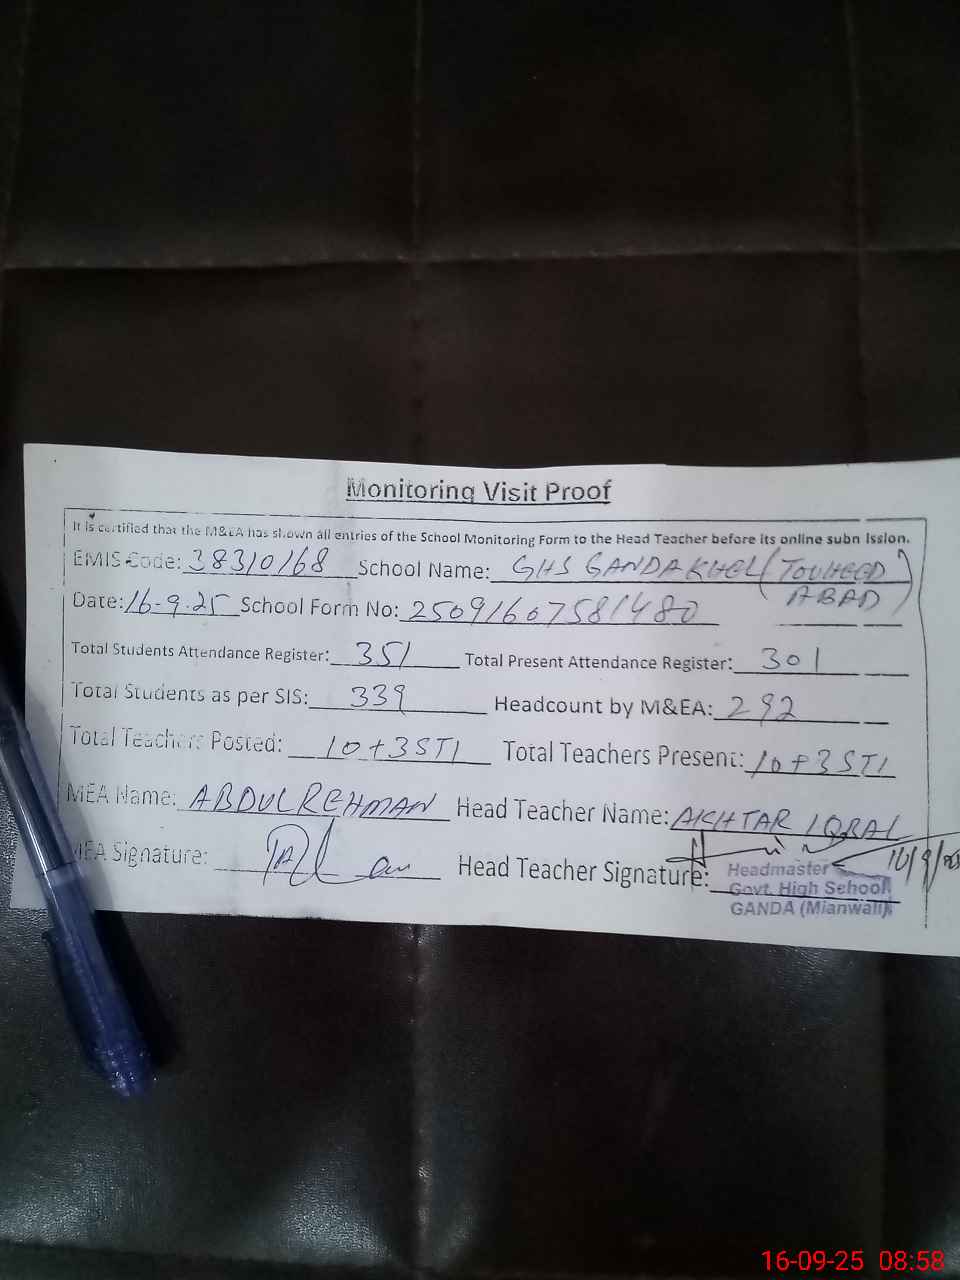 Monitoring Visit Proof
It is certified that the M&EA has shown all entries of the School Monitoring Form to the Head Teacher before its online submission.
EMIS Code: 38310168 School Name: GHS GANDAKHEL (TOUHEED
ABAD)
Date: 16-9-25 School Form No: 25091607581480
Total Students Attendance Register: 351 Total Present Attendance Register: 301
Total Students as per SIS: 339 Headcount by M&EA: 292
Total Teachers Posted: 10+3STI Total Teachers Present: 10+3STI
MEA Name: ABDULREHMAN Head Teacher Name: AKHTAR IQBAL
MEA Signature: Head Teacher Signature: 16/9/25
Headmaster
Govt. High School
GANDA (Mianwali)
16-09-25 08:58